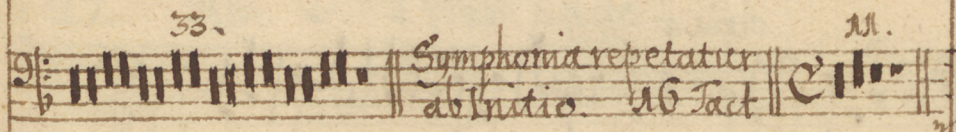 33. 11.
Symphonia repetatur
ab Initio. 16 Tact